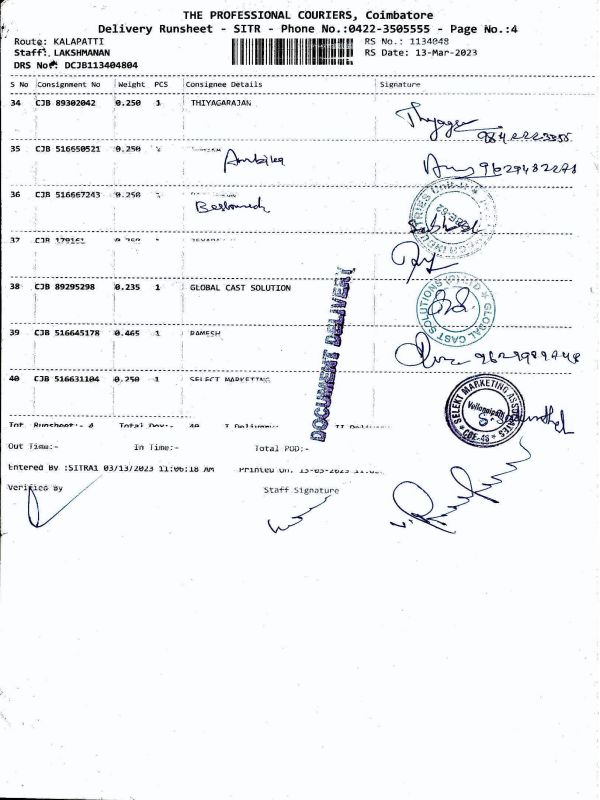 THE PROFESSIONAL COURIERS, Coimbatore
Delivery Runsheet - SITR - Phone No.:0422-3505555 - Page No.:4
Route: KALAPATTI
RS No.: 1134048
Staff: LAKSHMANAN
RS Date: 13-Mar-2023
DRS No: DCJB113404804
S No Consignment No Weight PCS Consignee Details Signature
34 CJB 89302042 0.250 1 THIYAGARAJAN
35 CJB 516650521 0.250 Ambika
36 CJB 516667243 0.250
37 CJB 179161
38 CJB 89295298 0.235 1 GLOBAL CAST SOLUTION
GLOBAL CAST SOLUTIONS (P) LTD
DOCUMENT DELIVERY
39 CJB 516645178 0.465 1 RAMESH
40 CJB 516631104 0.250 1 SELECT MARKETING
SELEKT MARKETING ASSOCIATES
CBE-48
Tot Runsheet:- 4 Total Dox:- 40 I Delivery: II Delivery:
Out Time:- In Time:- Total POD:-
Entered By :SITRA1 03/13/2023 11:06:18 AM Printed On. 13-03-2023
Verified By Staff Signature